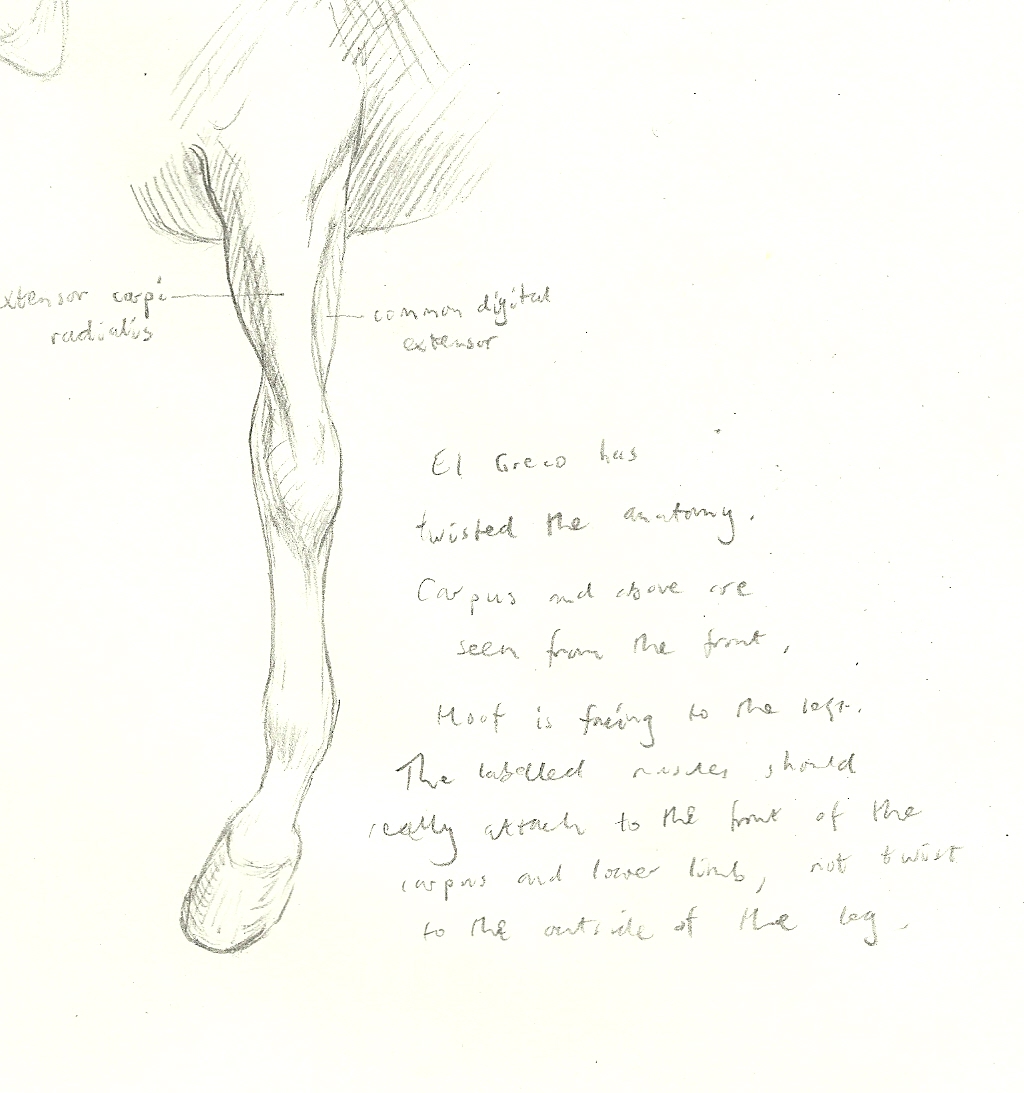 xtensor carpi
radialis
common digital
extensor
El Greco has
twisted the anatomy.
Carpus and above are
seen from the front,
Hoof is facing to the left.
The labelled muscles should
really attach to the front of the
carpus and lower limb, not twist
to the outside of the leg.